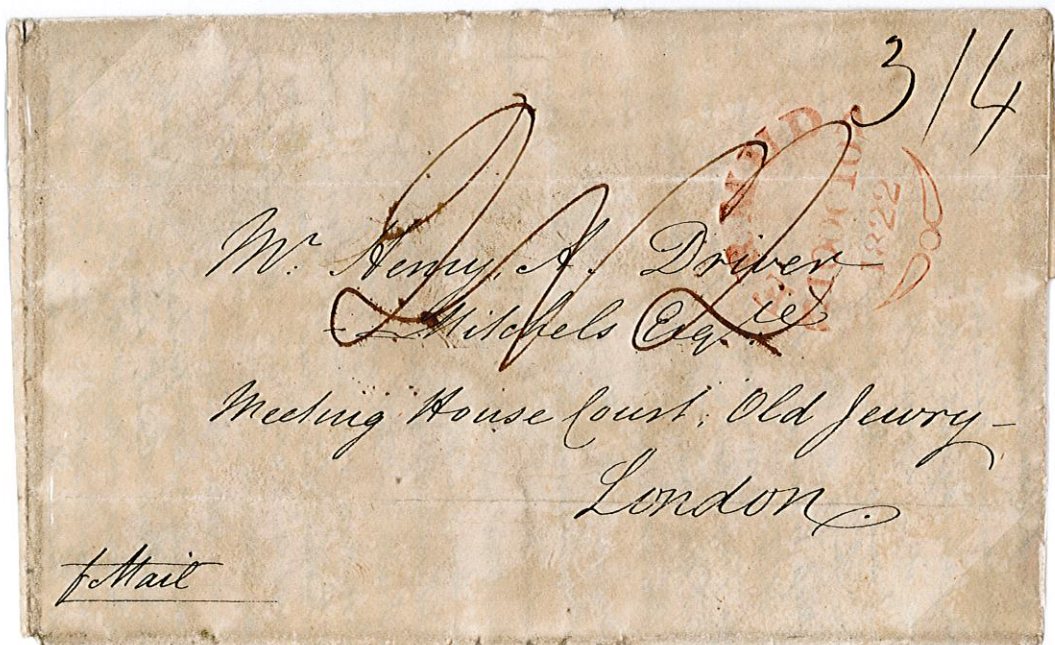 3/4
2N2
Mr. Henry A. Driver
Mitchels Esqre
Meeting House Court, Old Jewry
London
p Mail
1822